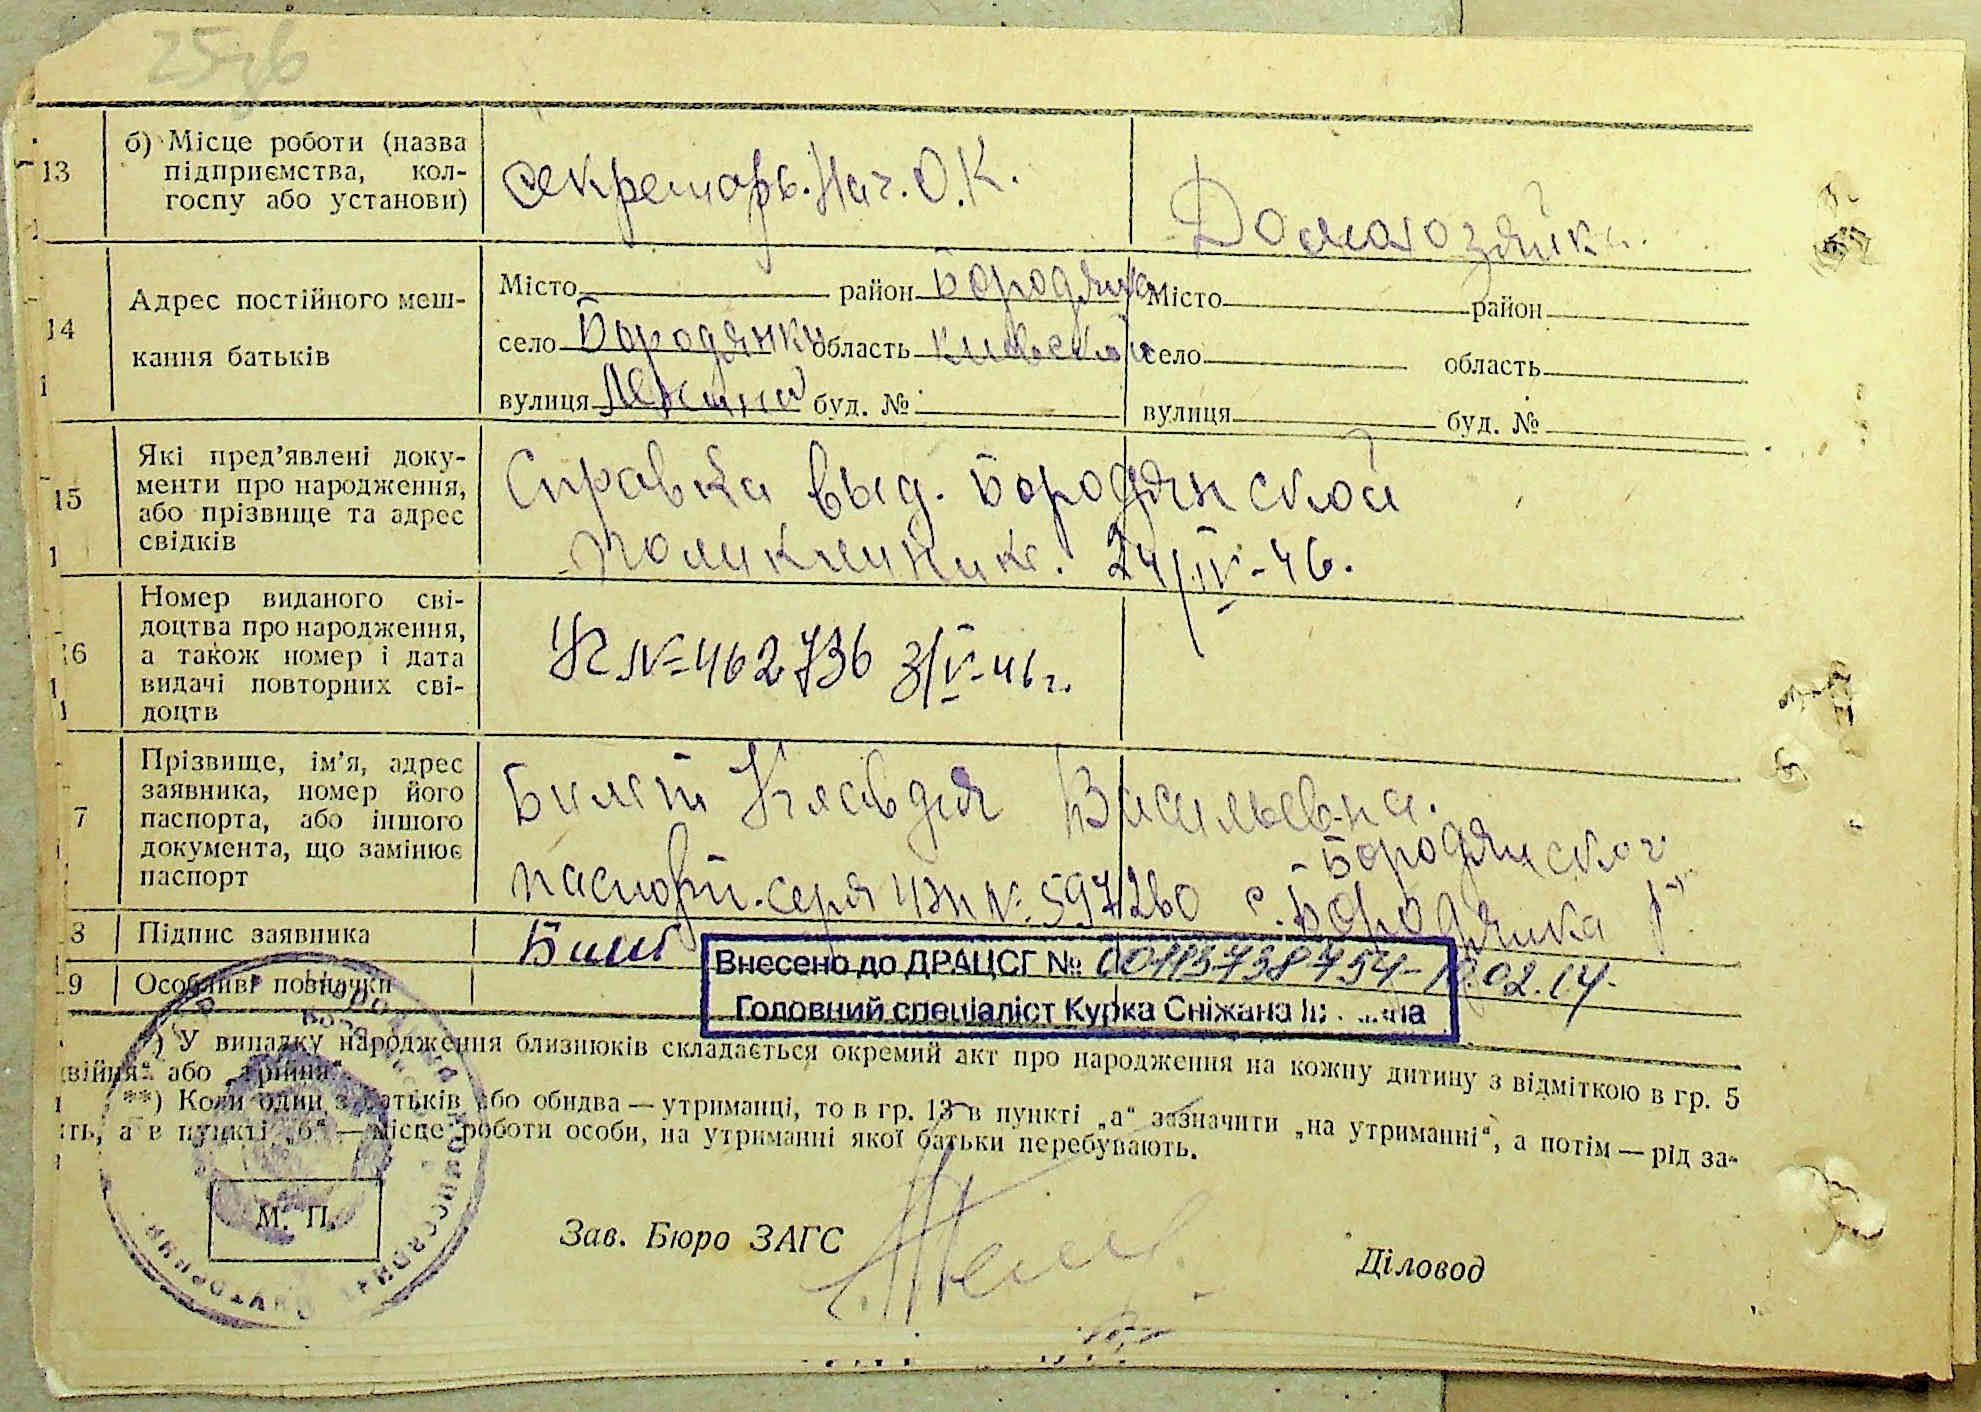 25зв
13
б) Місце роботи (назва
підприємства, кол-
госпу або установи)
секретарь. Нач. О.К.
Домохозяйка.
14
Адрес постійного меш-
кання батьків
Місто район Бородянка
село Бородянку область киевской
вулиця Ленина буд. №
Місто район
село область
вулиця буд. №
15
Які пред'явлені доку-
менти про народження,
або прізвище та адрес
свідків
Справка выд. Бородянской
поликлиник. 24/IV-46.
16
Номер виданого сві-
доцтва про народження,
а також номер і дата
видачі повторних сві-
доцтв
№ 462736 3/V-46 г.
7
Прізвище, ім'я, адрес
заявника, номер його
паспорта, або іншого
документа, що замінює
паспорт
Васильевна.
паспорт. серя № 597260 с. Бородянка
Бородянског
Підпис заявника
9
Особливі позначки
Внесено до ДРАЦСГ № 00113738754 - .02.14.
Головний спеціаліст Курка Сніжана
) У випадку народження близнюків складається окремий акт про народження на кожну дитину з відміткою в гр. 5
двійня“ або „трійня“.
**) Коли один з батьків або обидва — утриманці, то в гр. 13 в пункті „а“ зазначити „на утриманні“, а потім — рід за-
ть, а в пункті „б“ — місце роботи особи, на утриманні якої батьки перебувають.
М. П.
Зав. Бюро ЗАГС
Діловод